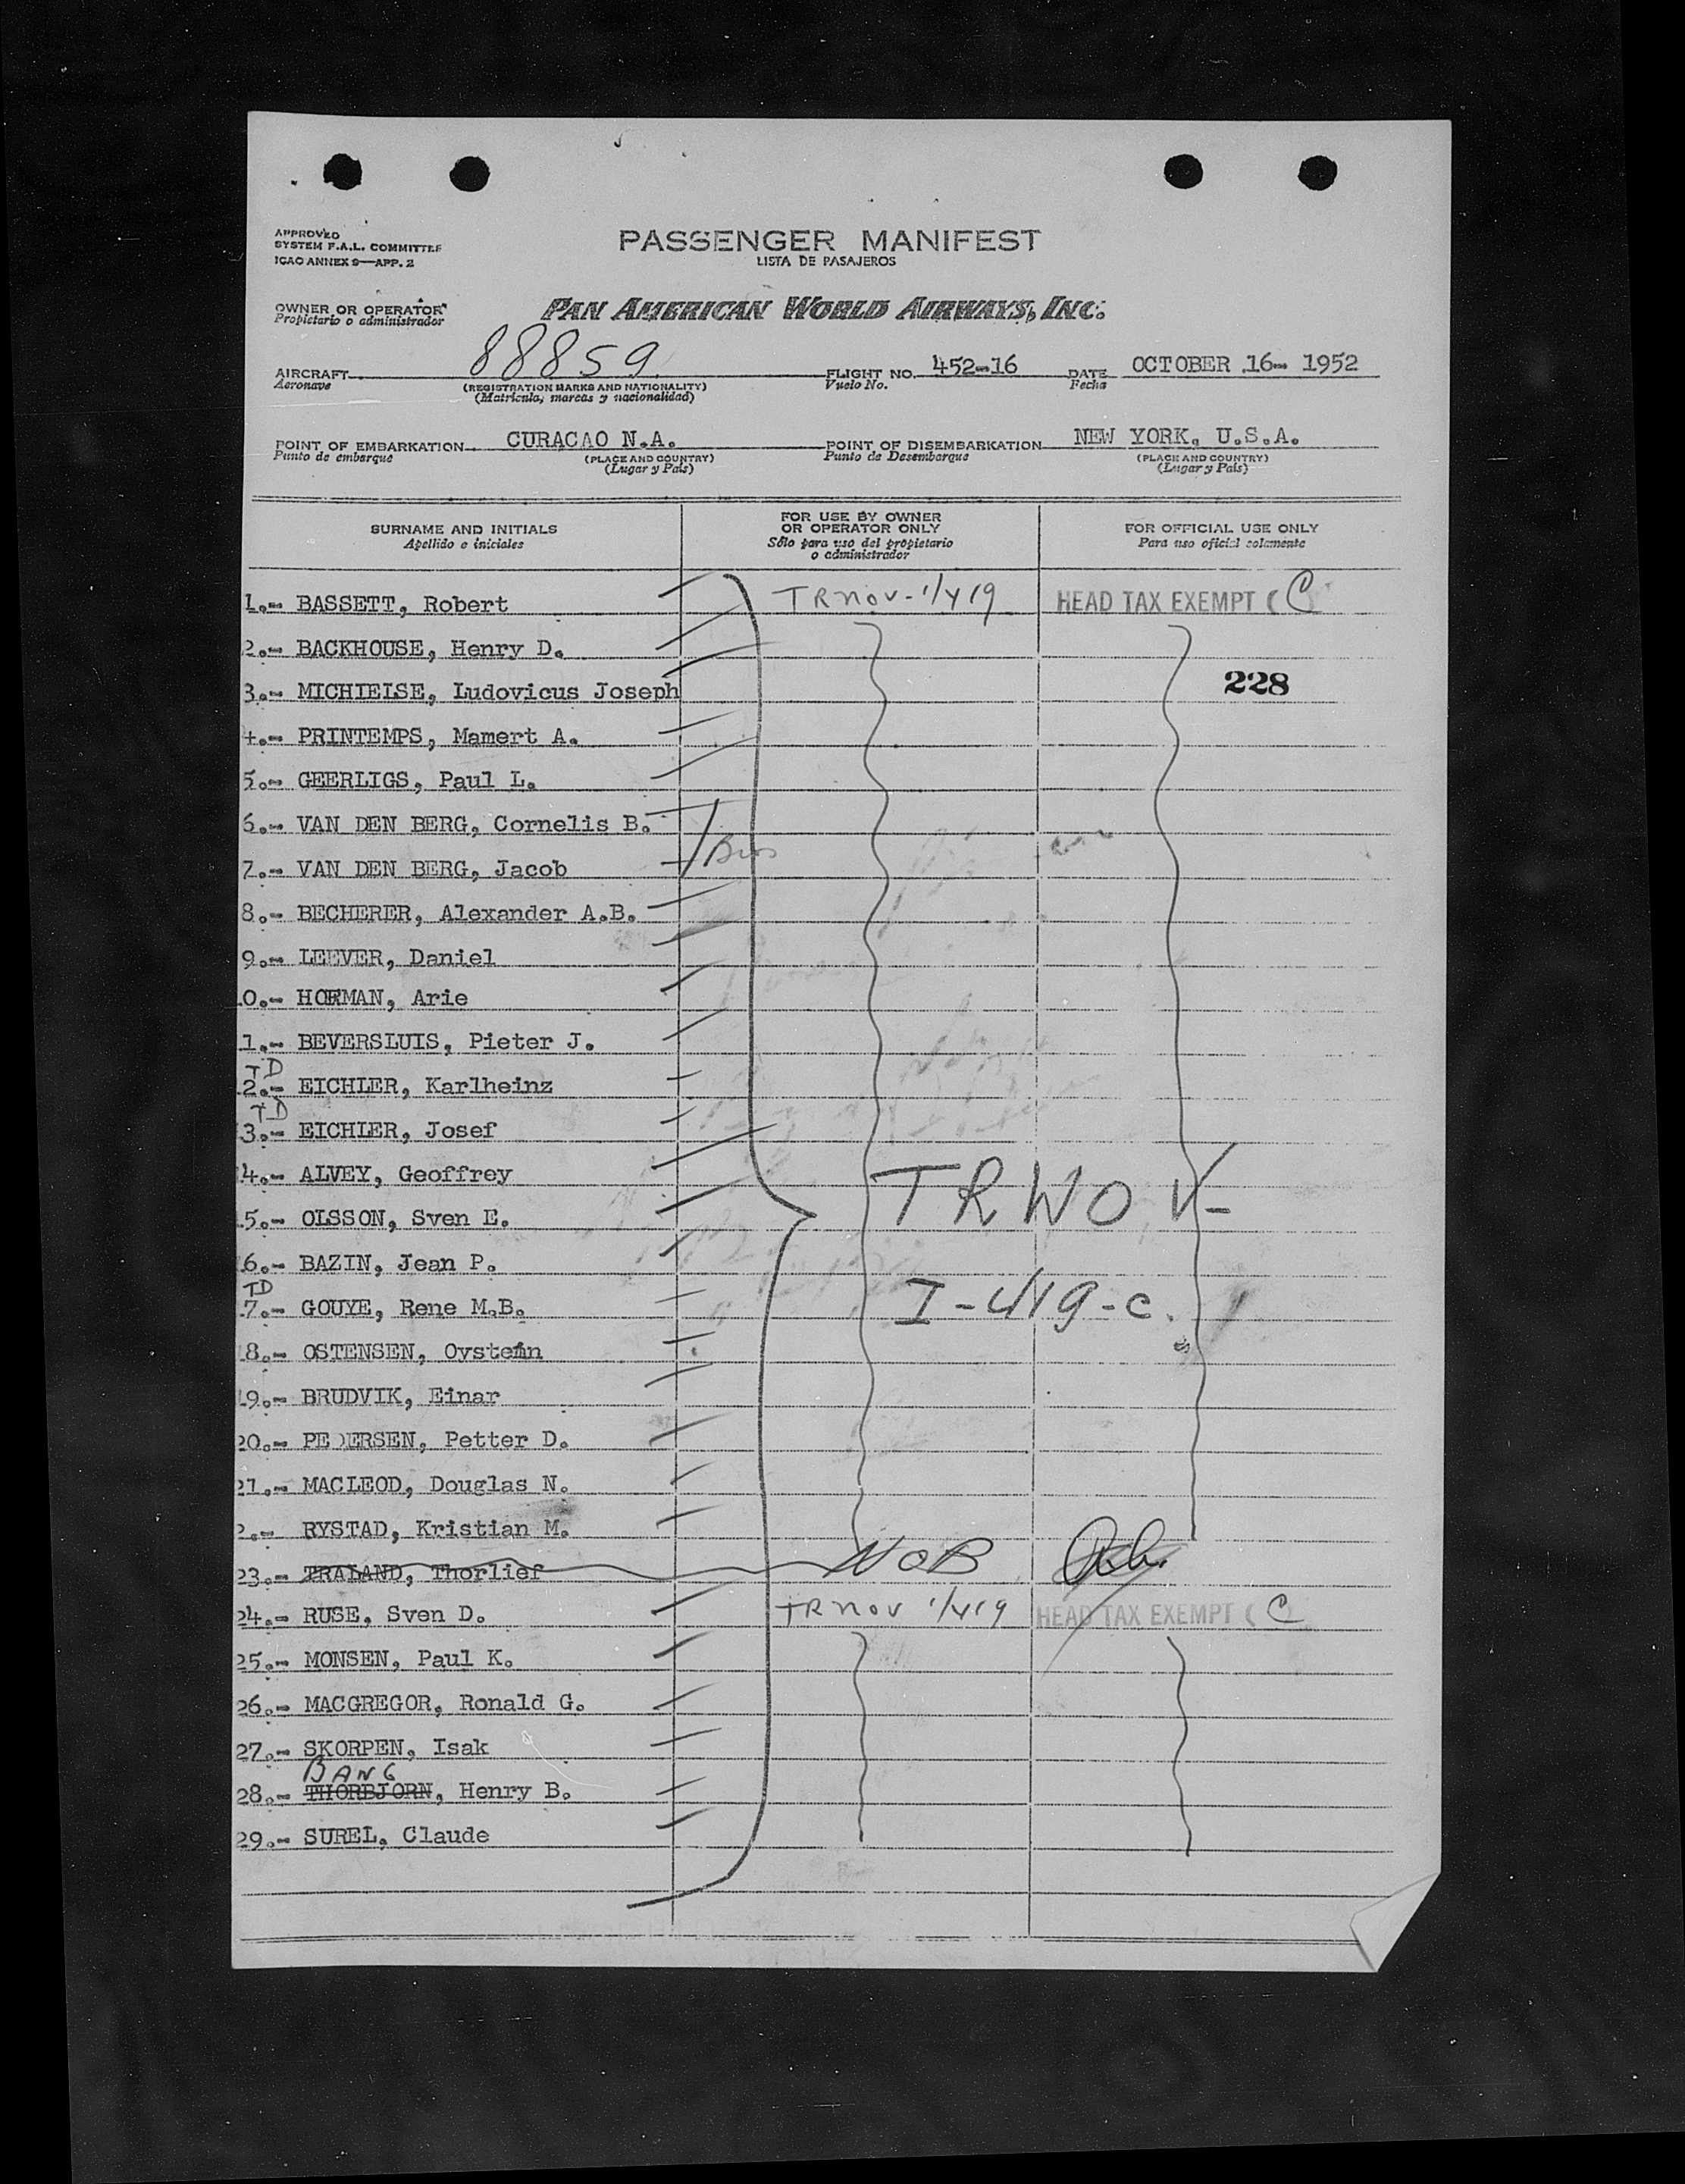 APPROVED
SYSTEM F.A.L. COMMITTEE
ICAO ANNEX 9—APP. 2
PASSENGER MANIFEST
LISTA DE PASAJEROS
OWNER OR OPERATOR
Propietario o administrador
PAN AMERICAN WORLD AIRWAYS, INC.
AIRCRAFT 88859 FLIGHT NO. 452-16 DATE OCTOBER 16- 1952
Aeronave (REGISTRATION MARKS AND NATIONALITY) Vuelo No. Fecha
(Matricula, marcas y nacionalidad)
POINT OF EMBARKATION CURACAO N.A. POINT OF DISEMBARKATION NEW YORK, U.S.A.
Punto de embarque (PLACE AND COUNTRY) Punto de Desembarque (PLACE AND COUNTRY)
(Lugar y País) (Lugar y País)
SURNAME AND INITIALS
Apellido e iniciales
FOR USE BY OWNER
OR OPERATOR ONLY
Sólo para uso del propietario
o administrador
FOR OFFICIAL USE ONLY
Para uso oficial solamente
1.- BASSETT, Robert TRNOV-1/419 HEAD TAX EXEMPT ( C
2.- BACKHOUSE, Henry D.
3.- MICHIELSE, Ludovicus Joseph 228
4.- PRINTEMPS, Mamert A.
5.- GEERLIGS, Paul L.
6.- VAN DEN BERG, Cornelis B.
7.- VAN DEN BERG, Jacob Bros
8.- BECHERER, Alexander A.B.
9.- LEEVER, Daniel
0.- HORMAN, Arie
1.- BEVERSLUIS, Pieter J.
TD
2.- EICHLER, Karlheinz
TD
3.- EICHLER, Josef
4.- ALVEY, Geoffrey
TRWOV-
5.- OLSSON, Sven E.
6.- BAZIN, Jean P.
TD
7.- GOUYE, Rene M.B. I-419-C.
8.- OSTENSEN, Oystein
19.- BRUDVIK, Einar
20.- PEDERSEN, Petter D.
21.- MACLEOD, Douglas N.
2.- RYSTAD, Kristian M.
23.- TRALAND, Thorlief NOB
24.- RUSE, Sven D. TRNOV 1/419 HEAD TAX EXEMPT ( C
25.- MONSEN, Paul K.
26.- MACGREGOR, Ronald G.
27.- SKORPEN, Isak
BANG
28.- THORBJORN, Henry B.
29.- SUREL, Claude